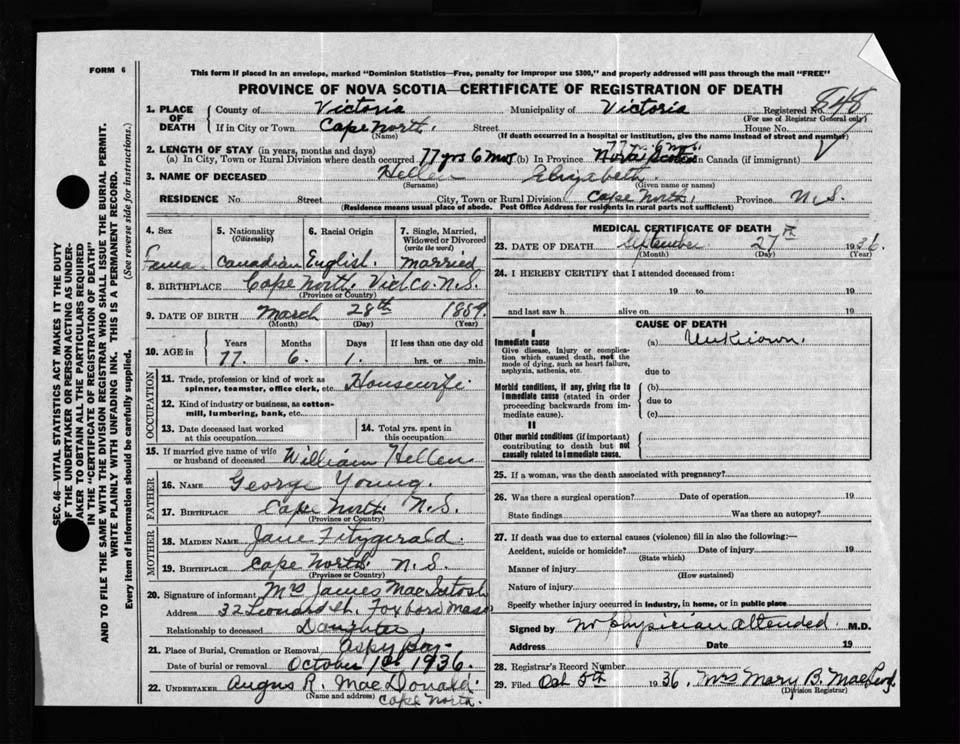 FORM 6
This form if placed in an envelope, marked "Dominion Statistics—Free, penalty for improper use $300," and properly addressed will pass through the mail "FREE"
PROVINCE OF NOVA SCOTIA—CERTIFICATE OF REGISTRATION OF DEATH
848
1. PLACE OF DEATH County of Victoria Municipality of Victoria Registered No.
(For use of Registrar General only)
If in City or Town Cape North. Street House No.
(Name) (If death occurred in a hospital or institution, give the name instead of street and number)
2. LENGTH OF STAY (in years, months and days)
(a) In City, Town or Rural Division where death occurred 77 yrs 6 mos (b) In Province Nova Scotia in Canada (if immigrant)
3. NAME OF DECEASED Hellen Elizabeth
(Surname) (Given name or names)
RESIDENCE No Street City, Town or Rural Division Cape North, Province N.S.
(Residence means usual place of abode. Post Office Address for residents in rural parts not sufficient)
4. Sex 5. Nationality (Citizenship) 6. Racial Origin 7. Single, Married, Widowed or Divorced (write the word)
Canadian English. Married
8. BIRTHPLACE Cape North. Vict Co. N.S.
(Province or Country)
9. DATE OF BIRTH March 28th 1859.
(Month) (Day) (Year)
10. AGE in Years Months Days If less than one day old
77. 6. 1. hrs. or min.
OCCUPATION
11. Trade, profession or kind of work as spinner, teamster, office clerk, etc. Housewife.
12. Kind of industry or business, as cotton-mill, lumbering, bank, etc.
13. Date deceased last worked at this occupation 14. Total yrs. spent in this occupation
15. If married give name of wife or husband of deceased William Hellen
FATHER
16. NAME George Young.
17. BIRTHPLACE Cape North. N.S.
(Province or Country)
MOTHER
18. MAIDEN NAME Jane Fitzgerald.
19. BIRTHPLACE Cape North N.S.
(Province or Country)
20. Signature of informant Mrs James MacIntosh
Address 32 Leonard St. Foxboro Mass
Relationship to deceased Daughter,
21. Place of Burial, Cremation or Removal Aspy Bay.
Date of burial or removal October 1st 1936.
22. UNDERTAKER Angus R. MacDonald.
(Name and address) Cape North.
MEDICAL CERTIFICATE OF DEATH
23. DATE OF DEATH September 27th 1936.
(Month) (Day) (Year)
24. I HEREBY CERTIFY that I attended deceased from:
19 to 19
and last saw h alive on 19
CAUSE OF DEATH
I
Immediate cause (a) Unknown.
Give disease, injury or complication which caused death, not the mode of dying, such as heart failure, asphyxia, asthenia, etc.
due to
Morbid conditions, if any, giving rise to immediate cause (stated in order proceeding backwards from immediate cause).
(b)
due to
(c)
II
Other morbid conditions (if important) contributing to death but not causally related to immediate cause.
25. If a woman, was the death associated with pregnancy?
26. Was there a surgical operation? Date of operation 19
State findings Was there an autopsy?
27. If death was due to external causes (violence) fill in also the following:—
Accident, suicide or homicide? Date of injury 19
(State which)
Manner of injury
(How sustained)
Nature of injury
Specify whether injury occurred in industry, in home, or in public place
Signed by No physician attended M.D.
Address Date 19
28. Registrar's Record Number
29. Filed Oct 5th 1936. Mrs Mary B.
(Division Registrar)
SEC. 46—VITAL STATISTICS ACT MAKES IT THE DUTY
OF THE UNDERTAKER OR PERSON ACTING AS UNDER-
TAKER TO OBTAIN ALL THE PARTICULARS REQUIRED
IN THE "CERTIFICATE OF REGISTRATION OF DEATH"
AND TO FILE THE SAME WITH THE DIVISION REGISTRAR WHO SHALL ISSUE THE BURIAL PERMIT.
WRITE PLAINLY WITH UNFADING INK. THIS IS A PERMANENT RECORD.
Every item of information should be carefully supplied. (See reverse side for instructions.)